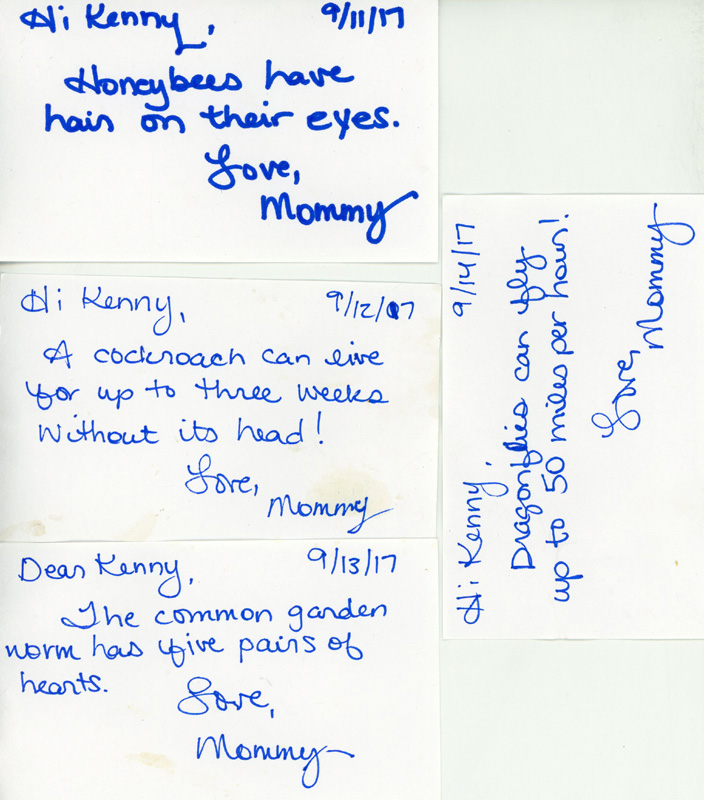 Hi Kenny, 9/11/17
Honeybees have
hair on their eyes.
Love,
Mommy
Hi Kenny, 9/12/07
A cockroach can live
for up to three weeks
without its head!
Love,
Mommy
Dear Kenny, 9/13/17
The common garden
worm has five pairs of
hearts.
Love,
Mommy
Hi Kenny, 9/14/17
Dragonflies can fly
up to 50 miles per hour!
Love,
Mommy